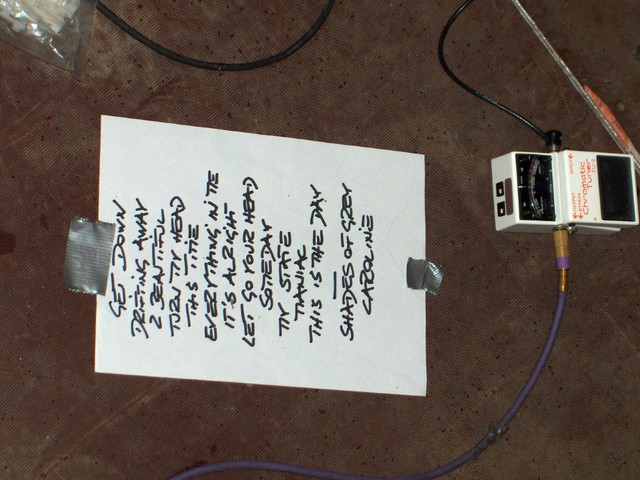 GET DOWN
DRIFTING AWAY
2 BEAUTIFUL
TURN MY HEAD
THIS TIME
EVERYTHING IN ME
IT'S ALRIGHT
LET GO YOUR HEAD
SOMEDAY
MY STATE
MANIAC
THIS IS THE DAY
SHADES OF GREY
CAROLINE
Chromatic
Tuner
OUTPUT